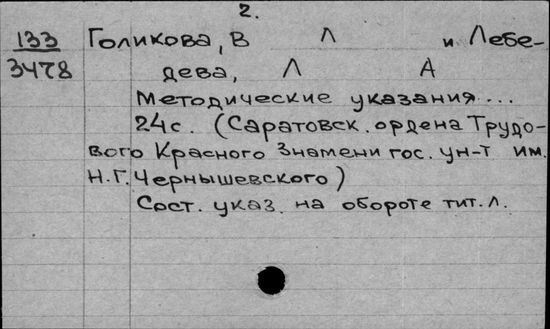 2.
133 Голикова, В Л и Лебе-
3478 дева, Л А
Методические указания...
24с. (Саратовск. ордена Трудо-
вого Красного Знамени гос. ун-т им.
Н.Г. Чернышевского)
Сост. указ. на обороте тит. л.